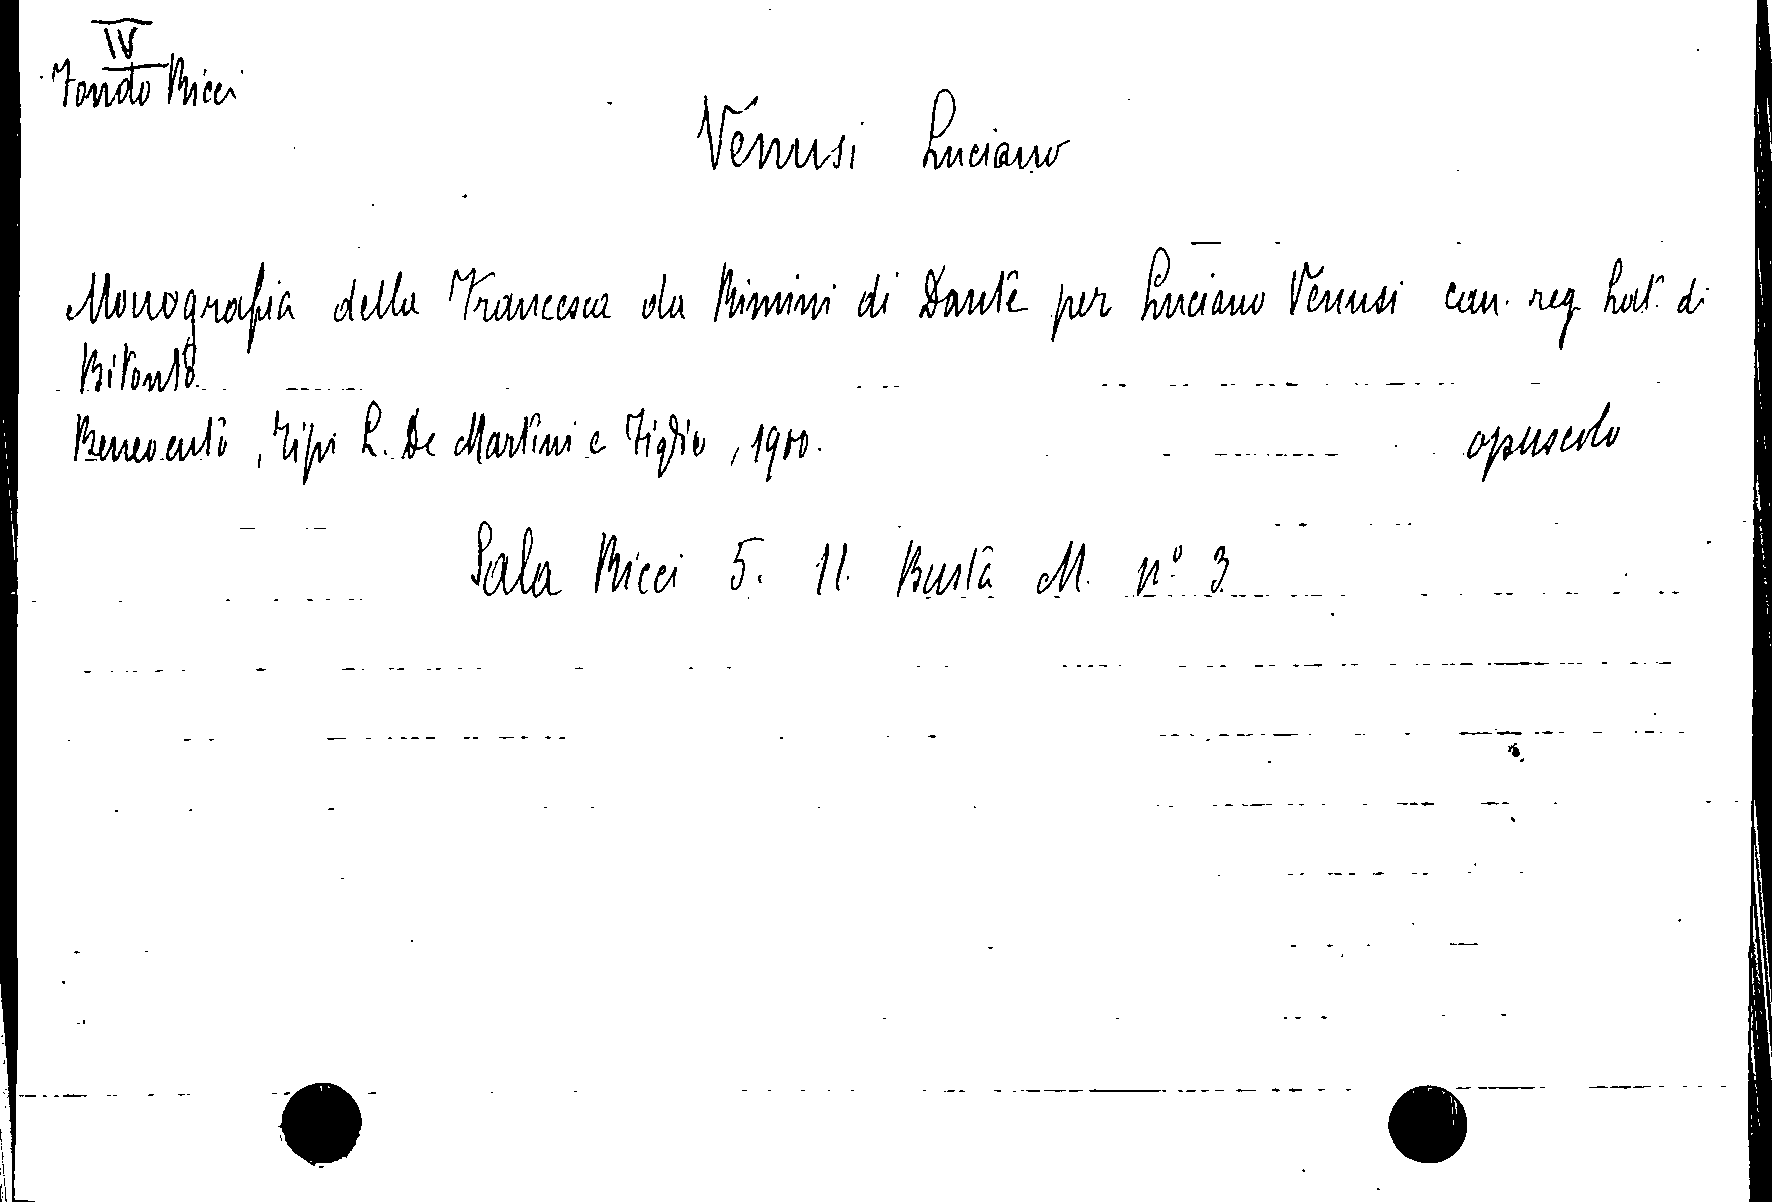 IV
Fondo Ricci
Venusi Luciano
Monografia della Francesca da Rimini di Dante per Luciano Venusi can. reg. Lat. di
Bitonto
Benevento, Tipi L. De Martini e Figlio, 1900. opuscolo
Sala Ricci 5. 11. Busta M. n.° 3